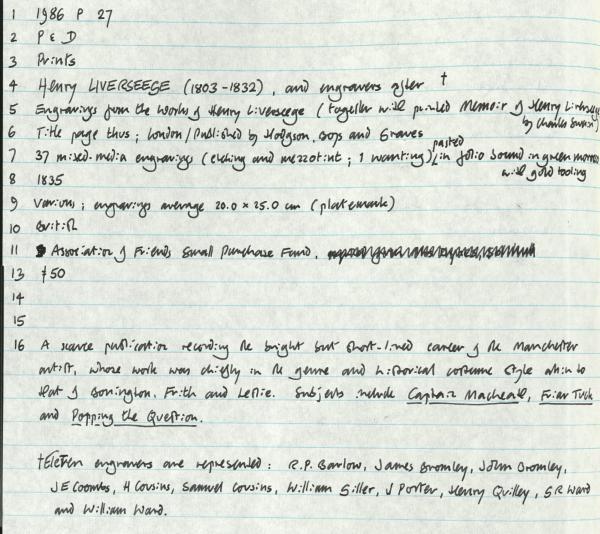 1 1986 P 27
2 P & D
3 Prints
4 Henry LIVERSEEGE (1803-1832), and engravers after †
5 Engravings from the Works of Henry Liverseege (together with printed Memoir of Henry Liverseege
by Charles Swain)
6 Title page thus; London/Published by Hodgson, Boys and Graves
7 37 mixed-media engravings (etching and mezzotint; 1 wanting) pasted in folio bound in green morocco
with gold tooling
8 1835
9 Various; engravings average 20.0 x 25.0 cm (platemark)
10 British
11 Association of Friends Small Purchase Fund.
13 £50
14
15
16 A scarce publication recording the bright but short-lived career of the Manchester
artist, whose work was chiefly in the genre and historical costume style akin to
that of Bonington, Frith and Leslie. Subjects include Captain Macheath, Friar Tuck
and Popping the Question.
†Eleven engravers are represented: R.P. Barlow, James Bromley, John Bromley,
JE Coombs, H Cousins, Samuel Cousins, William Giller, J Porter, Henry Quilley, S R Ward
and William Ward.